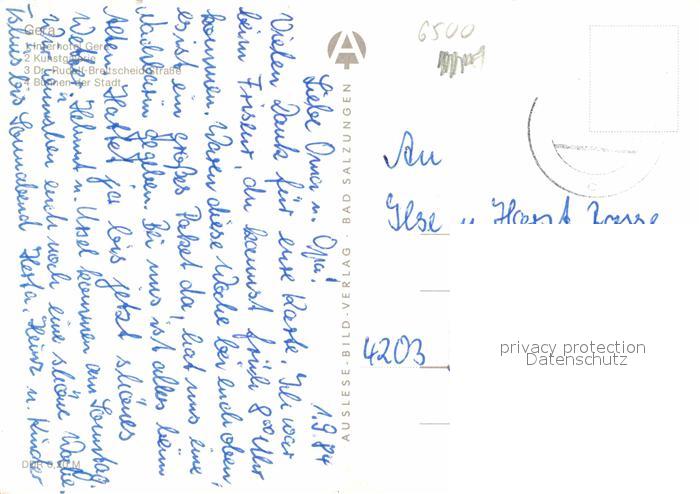 Gera
1 Interhotel Gera
2 Kunstgalerie
3 Dr.-Rudolf-Breitscheid-Straße
4 Bühnen der Stadt
1.9.84
Liebe Oma u. Opa!
Vielen Dank für eure Karte. Ich war
beim Friseur, du kannst früh 8 00 Uhr
kommen. Waren diese Woche bei euch oben,
es ist ein großes Paket da, hat uns eine
Nachbarin gegeben. Bei uns ist alles beim
Alten. Hattet ja bis jetzt schönes
Wetter. Helmut u. Ursel kommen am Sonntag.
Wir wünschen euch noch eine schöne Woche.
Tschüs bis Sonnabend Herta, Heinz u. Kinder
DDR 0,20 M
AUSLESE-BILD-VERLAG · BAD SALZUNGEN
6500
An
Ilse u. Horst
4203
privacy protection
Datenschutz